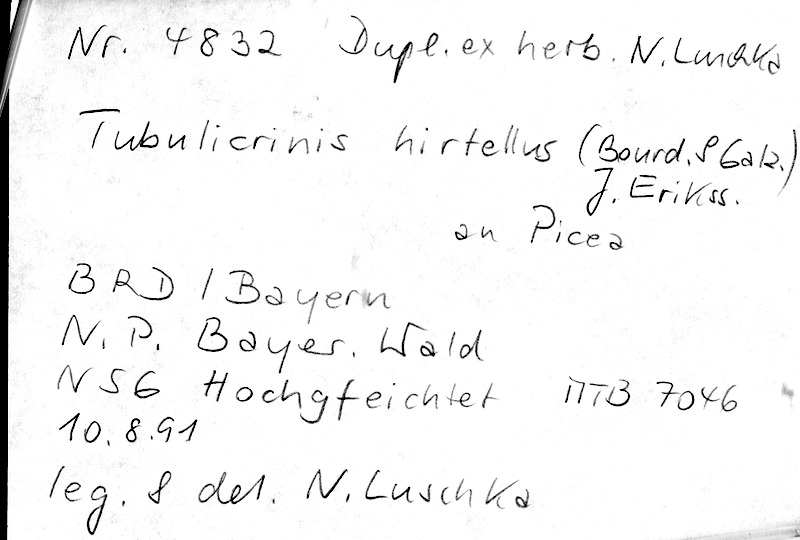 Nr. 4832 Dupl. ex herb. N. Luschka
Tubulicrinis hirtellus (Bourd. & Galz.)
J. Erikss.
an Picea
BRD / Bayern
N. P. Bayer. Wald
NSG Hochgfeichtet MTB 7046
10.8.91
leg. & det. N. Luschka